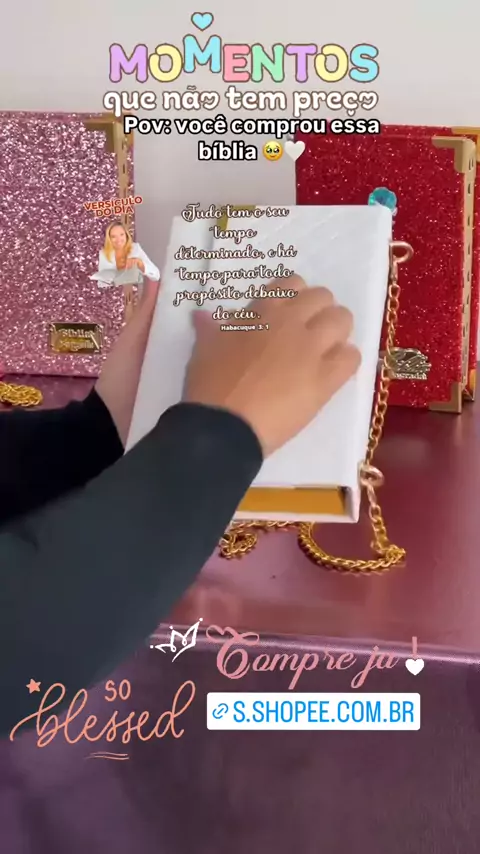 MOMENTOS
que não tem preço
Pov: você comprou essa
bíblia 🥹🤍
VERSÍCULO
DO DIA
Tudo tem o seu
tempo
determinado, e há
tempo para todo
propósito debaixo
do céu.
Habacuque 3:1
Bíblia
Sagrada
Sagrada
Compre já!
SO
blessed
S.SHOPEE.COM.BR